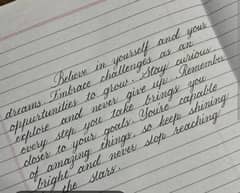 Believe in yourself and your
dreams. Embrace challenges as an
oppurtunities to grow. Stay curious,
explore and never give up. Remember
every step you take brings you
closer to your goals. You're capable
of amazing things, so keep shining
bright and never stop reaching
the stars.